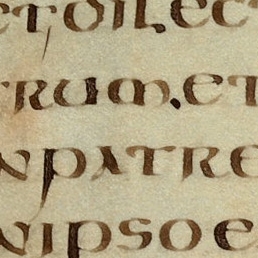 et dilect
trum·et
npatre
nipsoe